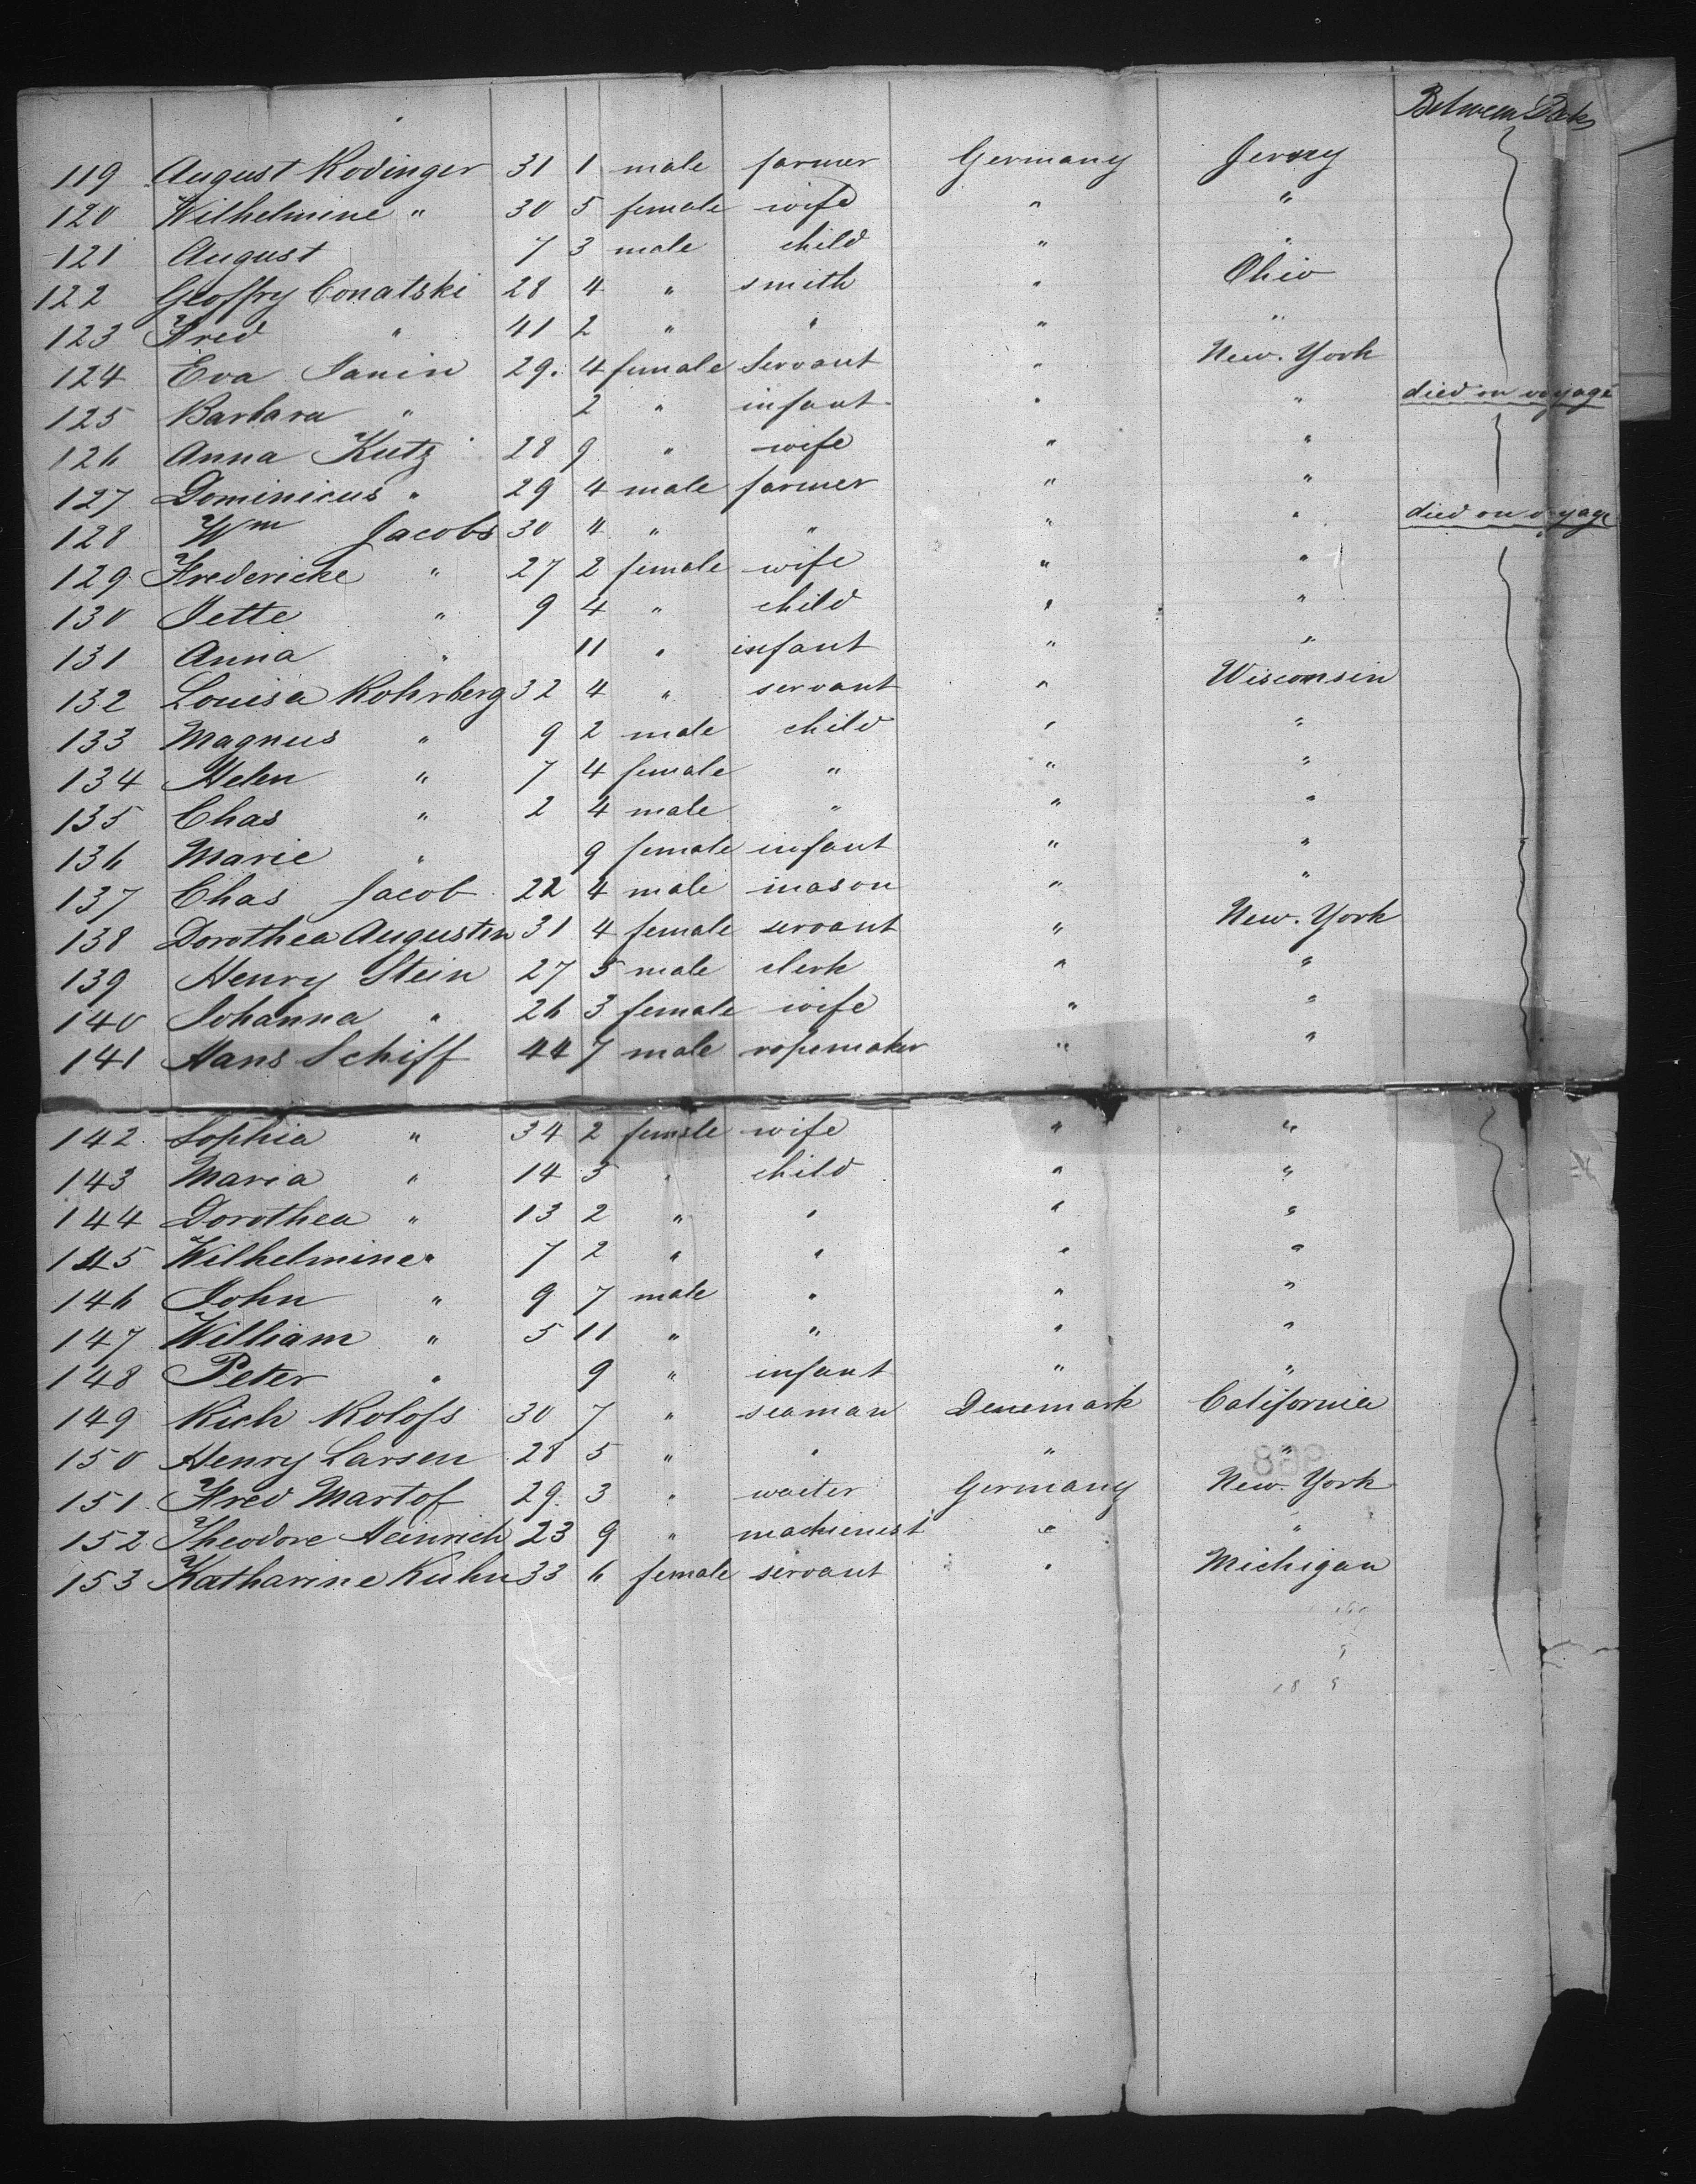 Between Decks
119 August Rodinger 31 1 male farmer Germany Jersey
120 Wilhelmine " 30 5 female wife " "
121 August 7 3 male child " "
122 Geoffry Conatski 28 4 " smith " Ohio
123 Fred " 41 2 " " " "
124 Eva Janin 29. 4 female Servant " New. York
125 Barbara " 2 " infant " " died on voyage
126 Anna Kutz 28 9 " wife " "
127 Dominicus " 29 4 male farmer " "
128 Wm Jacobs 30 4 " " " " died on voyage
129 Fredericke " 27 2 female wife " "
130 Jette " 9 4 " child " "
131 Anna " 11 " infant " "
132 Louisa Rohrberg 32 4 " servant " Wisconsin
133 Magnus " 9 2 male child " "
134 Helen " 7 4 female " " "
135 Chas " 2 4 male " " "
136 Marie " 9 female infant " "
137 Chas Jacob 22 4 male mason " "
138 Dorothea Augusten 31 4 female servant " New. York
139 Henry Stein 27 5 male clerk " "
140 Johanna " 26 3 female wife " "
141 Hans Schiff 44 7 male ropemaker " "
142 Sophia " 34 2 female wife " "
143 Maria " 14 5 " child " "
144 Dorothea " 13 2 " " " "
145 Wilhelmine " 7 2 " " " "
146 John " 9 7 male " " "
147 William " 5 11 " " " "
148 Peter " 9 " infant " "
149 Rich Rolofs 30 7 " seaman Denemark California
150 Henry Larsen 28 5 " " " "
151 Fred Martof 29. 3 " waiter Germany New. York
152 Theodore Heinrich 23 9 " machienest " "
153 Katharine Kuhn 33 6 female servant " Michigan